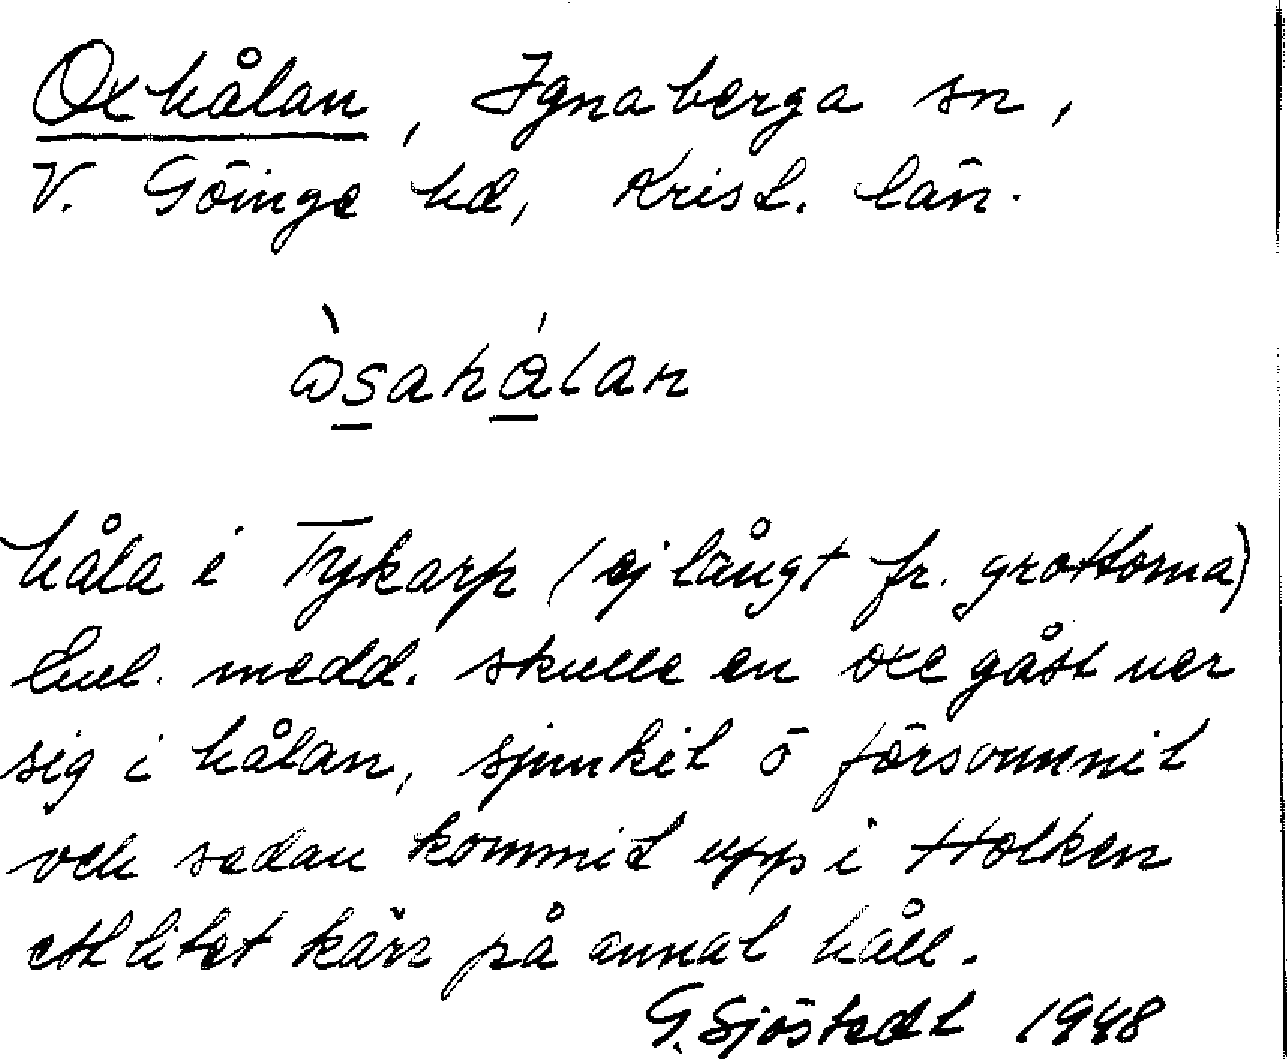 Oxhålan, Ignaberga sn,
V. Göinge hd, Krist. län.
håla i Tykarp (ej långt fr. grottorna)
Enl. medd. skulle en oxe gåst ner
sig i hålan, sjunkit o försvunnit
och sedan kommit upp i Holken
ett litet kärr på annat håll.
G. Sjöstedt 1948